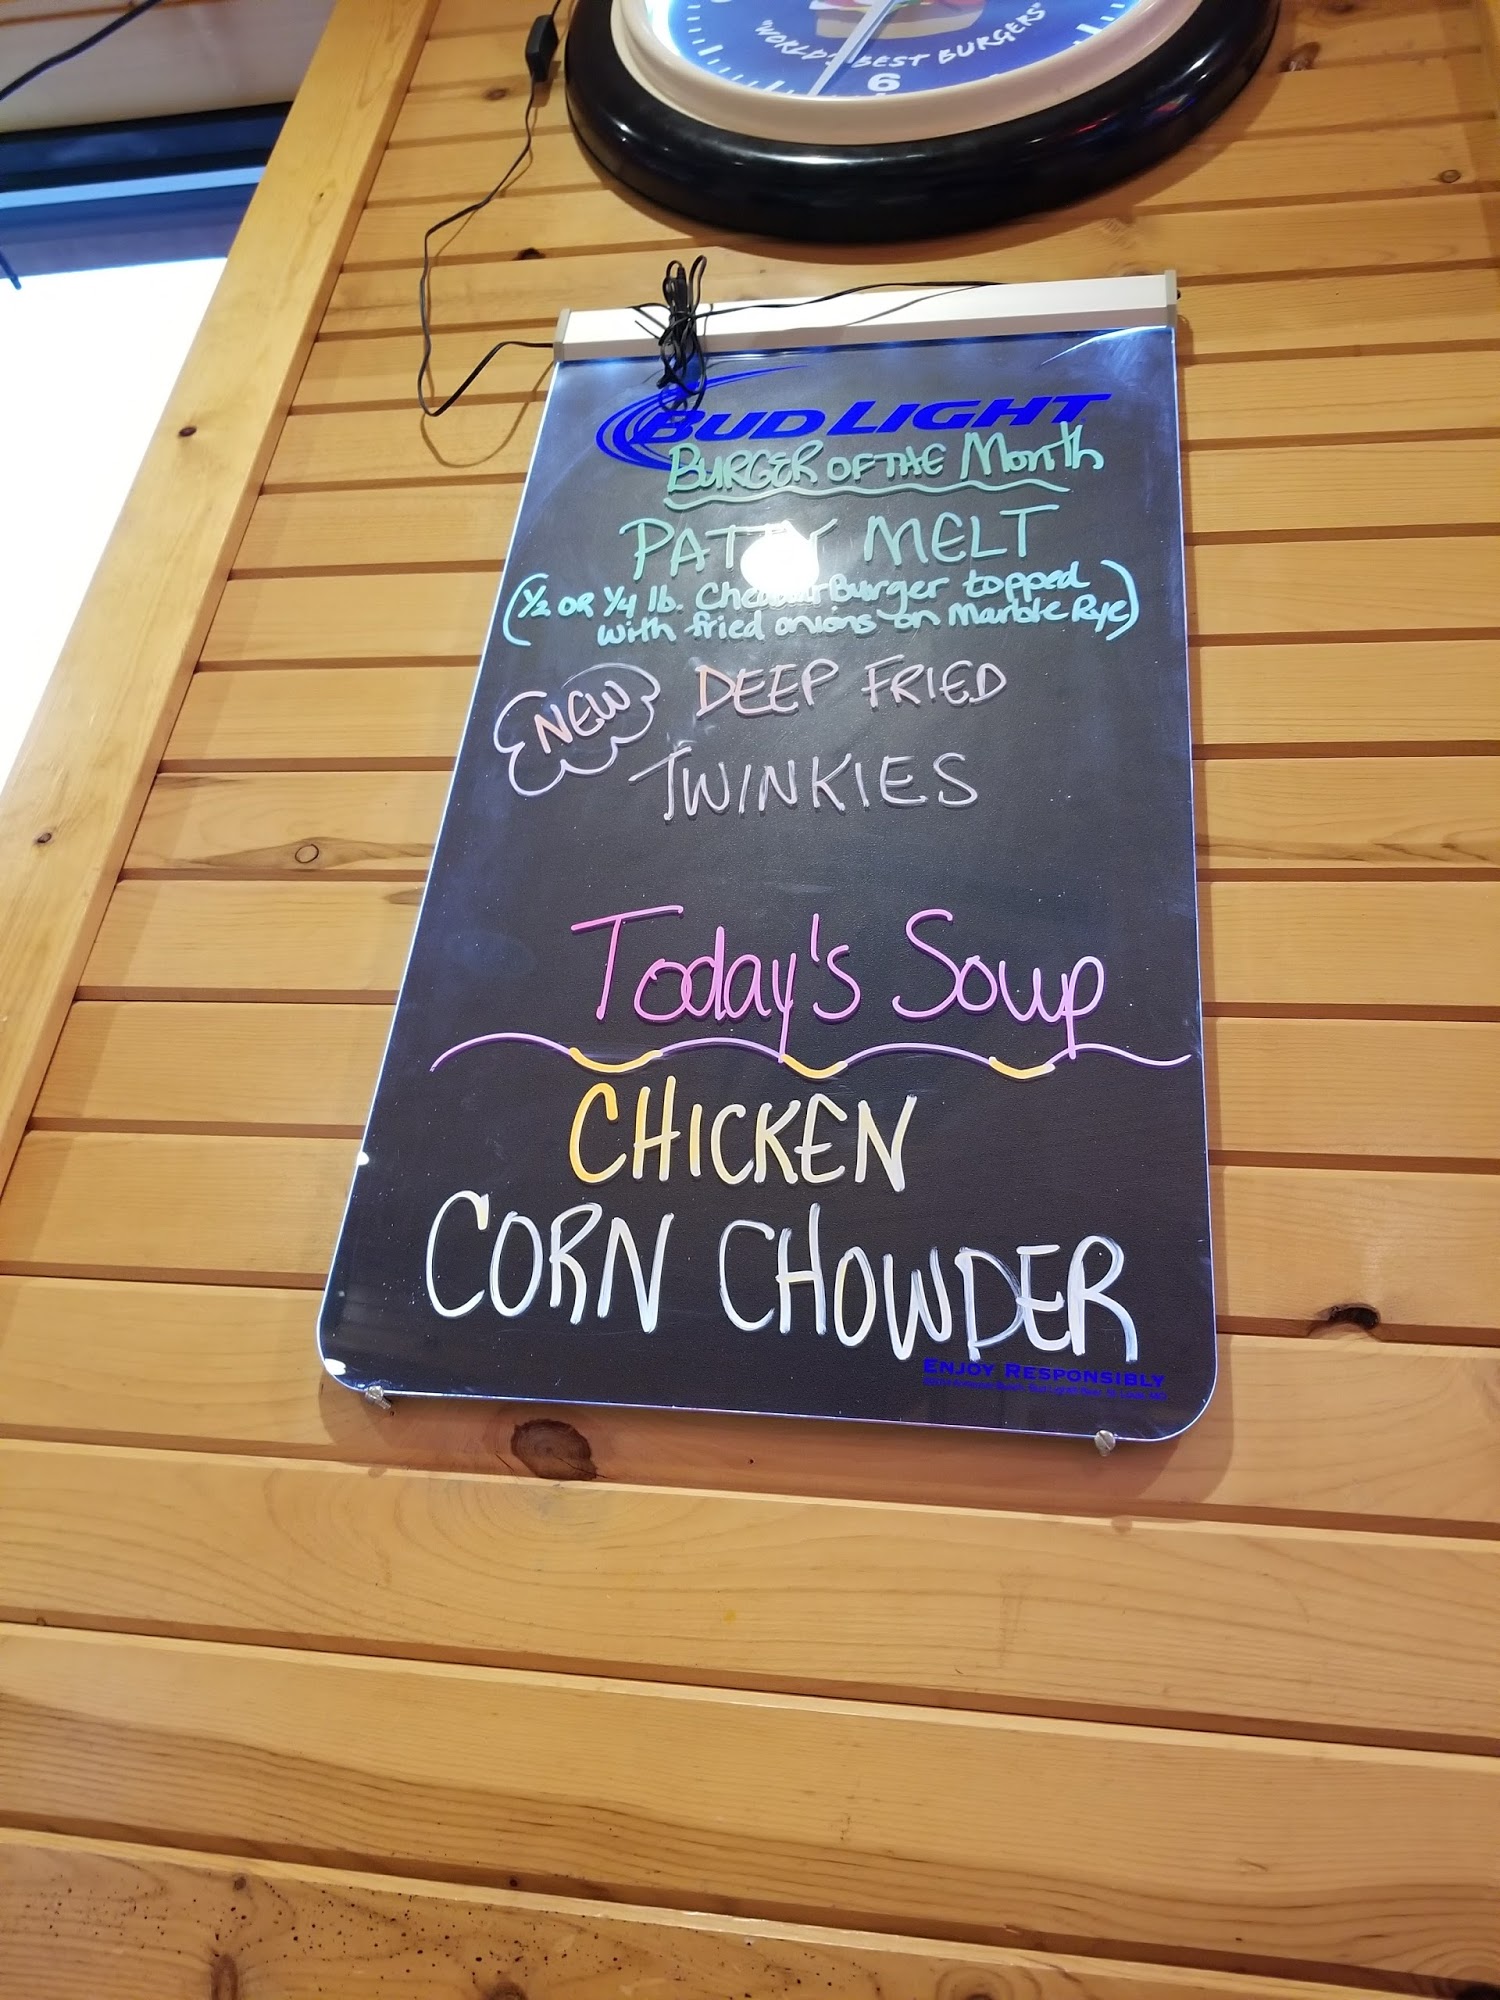 "WORLD'S BEST BURGERS"
6
BUD LIGHT
BURGER OF THE Month
PATTY MELT
(1/2 OR 1/4 lb. CheddarBurger topped
with fried onions on Marble Rye)
NEW DEEP FRIED
TWINKIES
Today's Soup
CHICKEN
CORN CHOWDER
ENJOY RESPONSIBLY